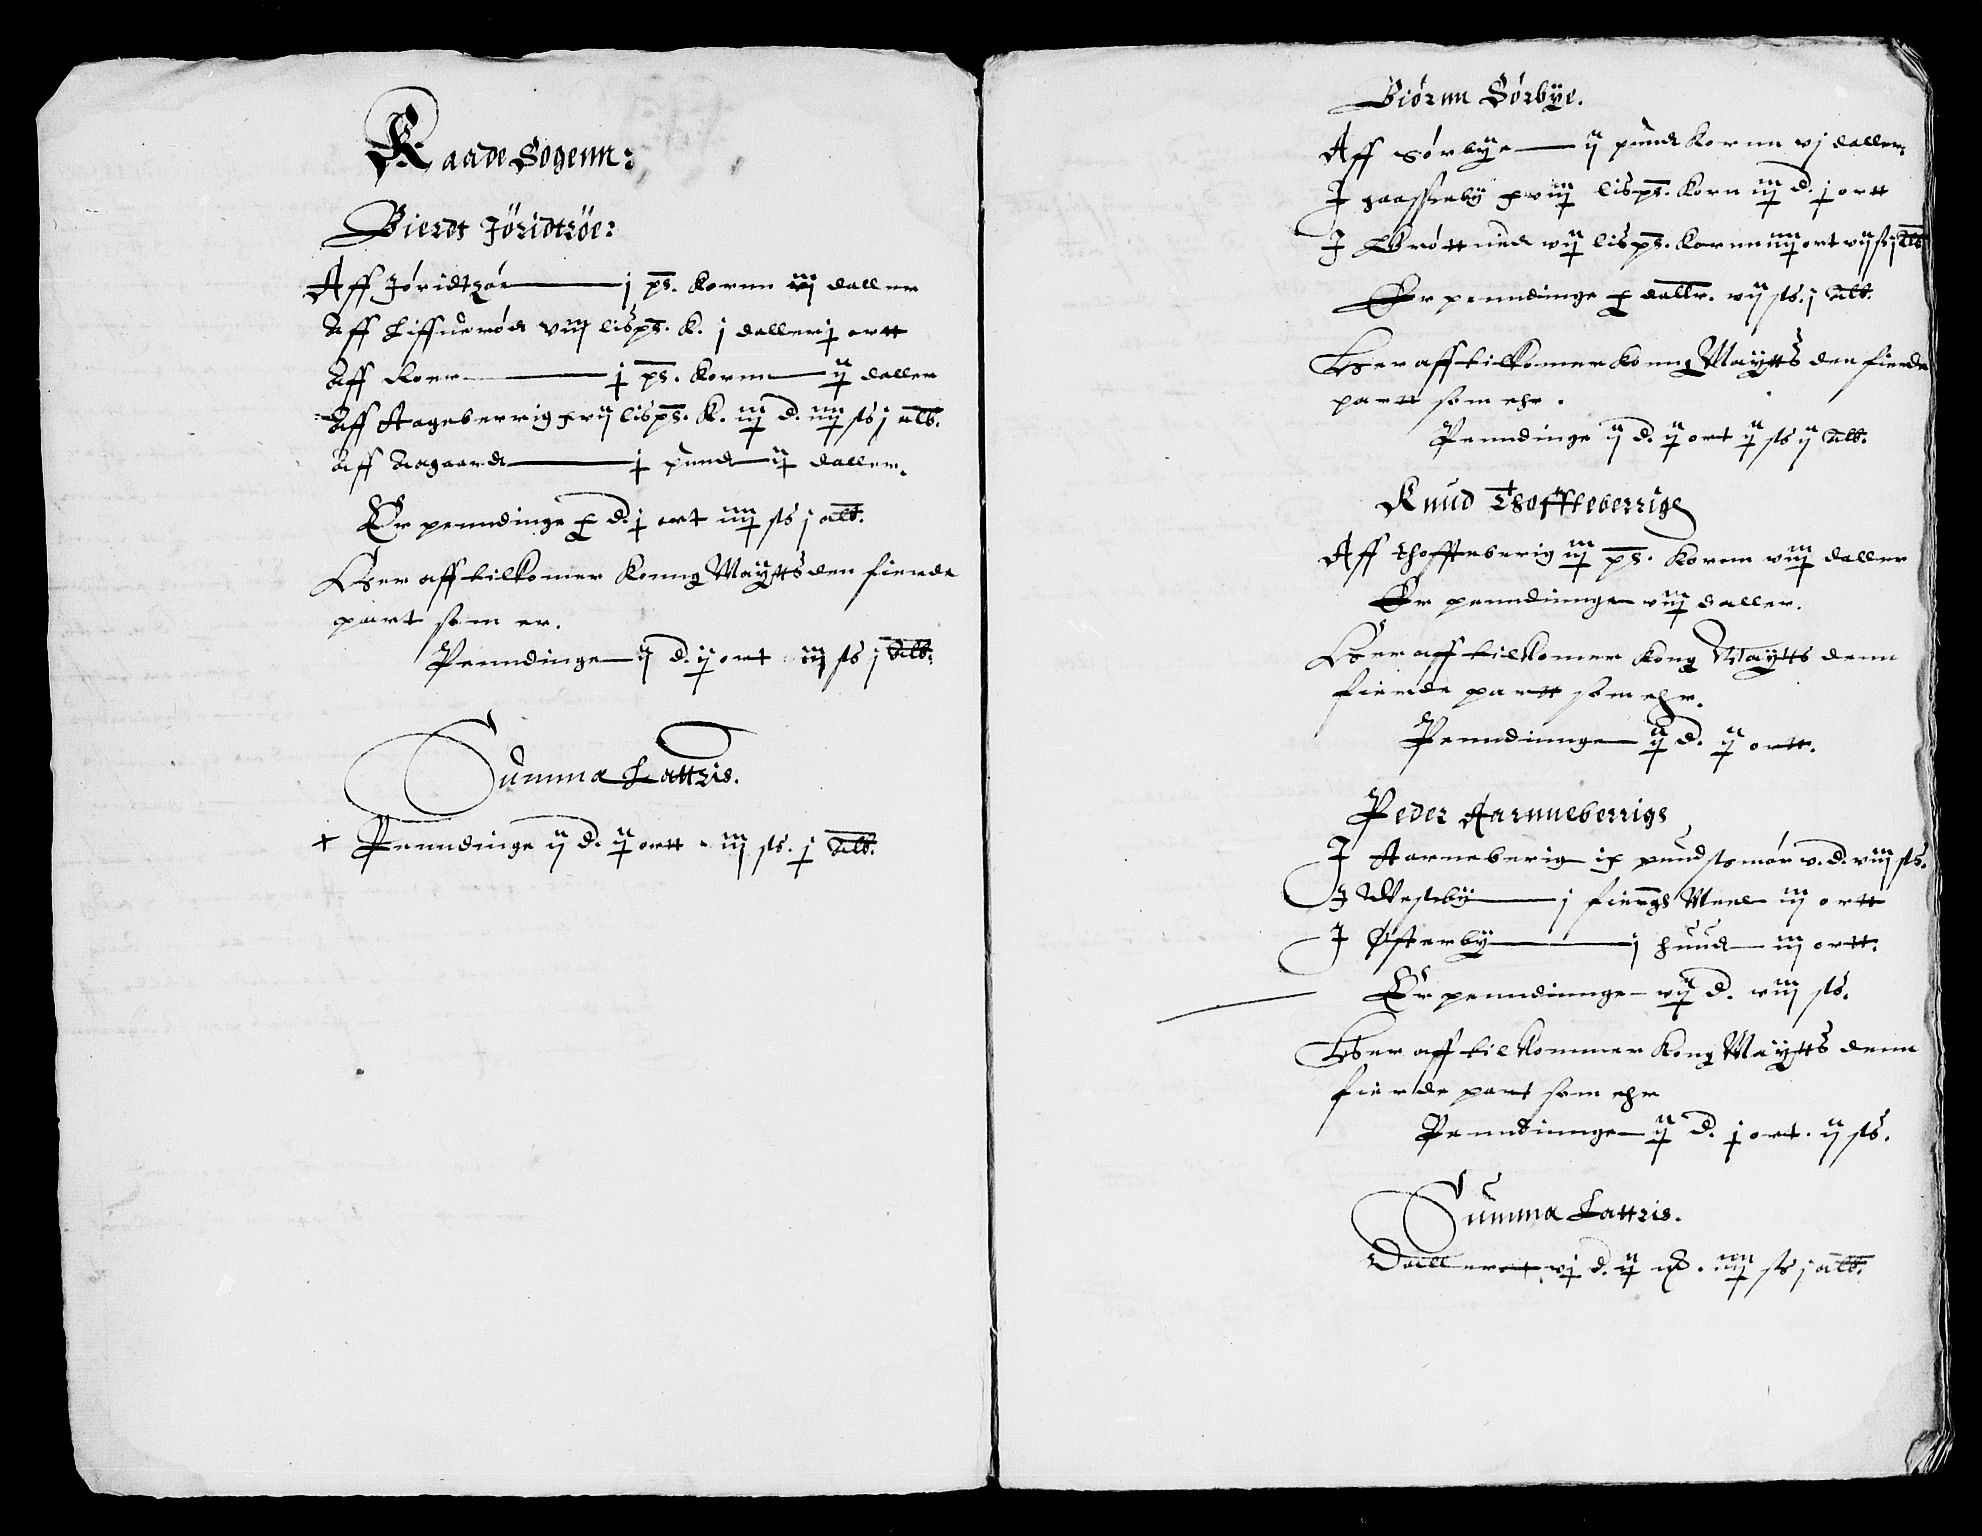 Raade Sogenn:
Bierdt Jöridtröe:
Aff Jöridtzöe j pd. Kornn iij daller
Aff Liffuerød viij lispd. K. j daller j ortt
Aff Roer j pd. Kornn ij daller
Aff Hageberrig xvij lispd. K. iij d. iiij ſß j alb.
Aff Aagaard j pund ij daller.
Er penndinge x d. j ort iiij ſß j alb.
Her aff tilkomer Konng Maytts den fierde
part som er.
Penndinge ij d. ij ort iij ſß j alb.
Summa Lattris.
+ Penndinge ij d. ij ortt iij ſß. j alb.
Biörnn Sörbÿe.
Aff Sørbÿe ij pund Kornn vj daller.
J xviij lispd. Korn iij d. j ortt
J vij lispd. Kornn iiij ort vij ſß j alb
Er penndinge x dallr. vij ſß. j alb.
Her aff tilkomer Konng Maytts den fierde
partt som ehr.
Penndinge ij d. ij ort ij ſß ij alb.
Knud Thoffteberrig
Aff Thoffteberig iij pd. Kornn viij daller
Er penndinnge viij daller.
Her aff tilkomer Kong Maytts denn
fierde partt som ehr.
Penndinnge ij d. ij ortt.
Peder Aarnneberrigs
J Aarneberig ix pund smør v. d. viij ſß.
J Westby j fierngs Meel iij ortt
J Østerbÿ j huud iij ortt.
Er penndinnge vij d. viij ſß.
Her aff tilkommer Kong Maÿtts denn
fierde part som ehr
Penndinnge ij d. j ort. ij ſß.
Summa Lattris.
Daller vj d. ij iiij ſß j alb.